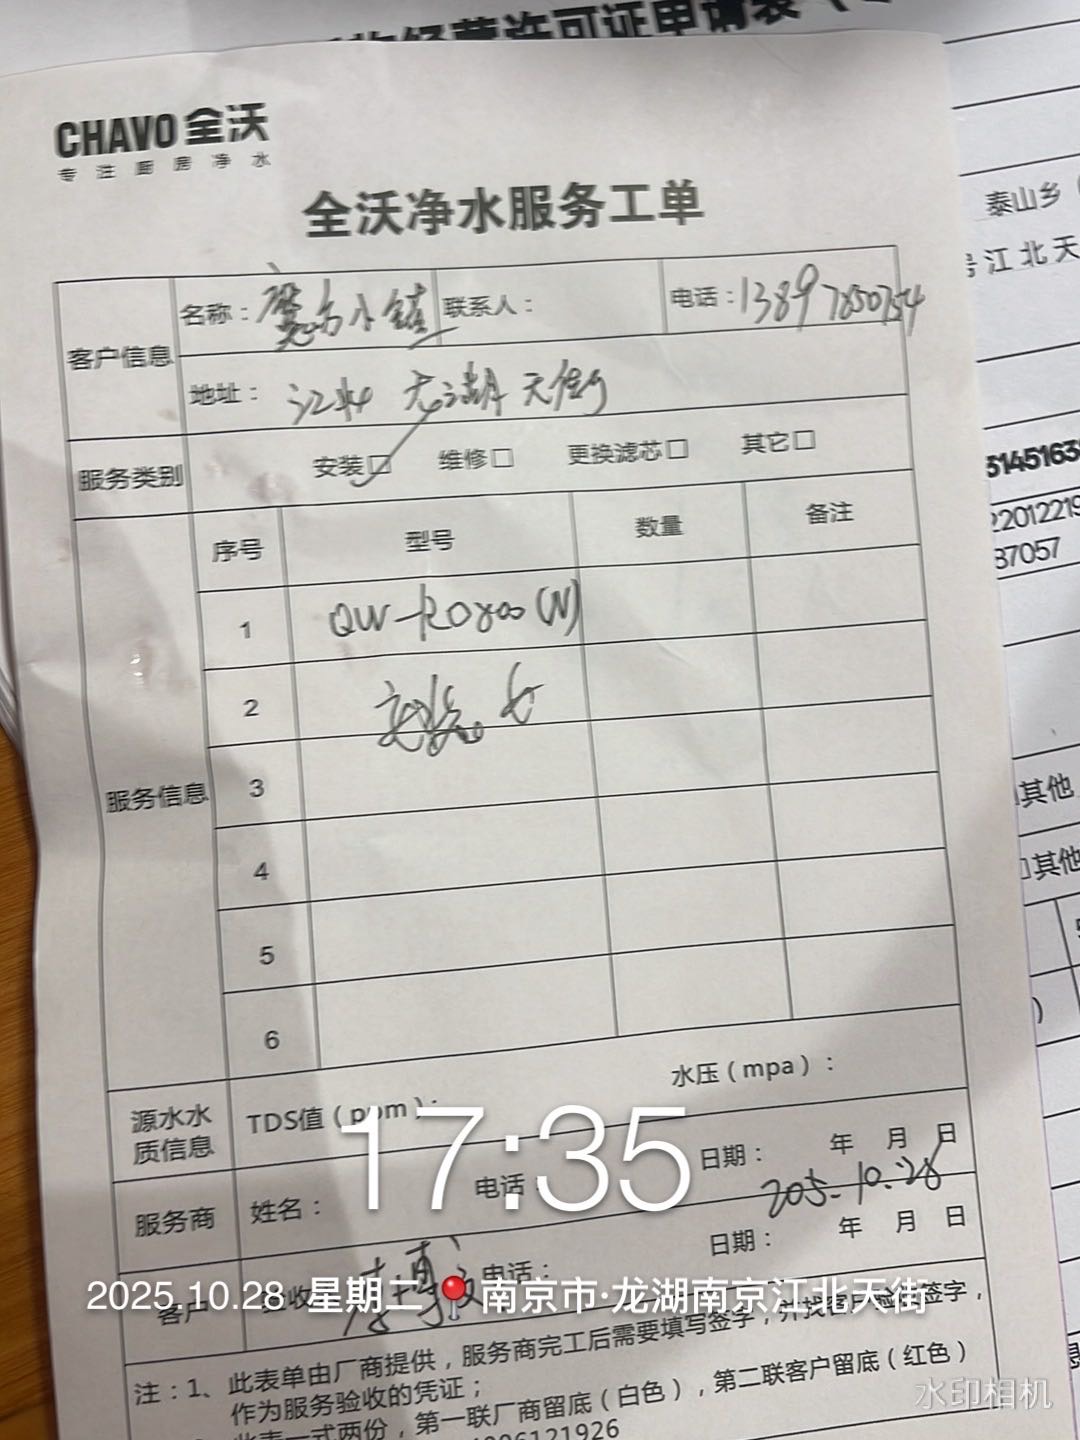 经营许可证申请表
CHAVO 全沃
专注厨房净水
全沃净水服务工单
泰山乡
号江北天
客户信息
名称： 小镇 联系人： 电话：
地址：江北 龙湖天街
服务类别 安装☑ 维修□ 更换滤芯□ 其它□
服务信息
序号 型号 数量 备注
1 QW-RO800(N)
2
3
4
5
6
2201221
87057
其他
□其他
源水水质信息 TDS值（ppm）： 水压（mpa）：
17:35
服务商 姓名： 电话： 日期： 年 月 日
客户 验收 电话： 日期： 年 月 日
2025.10.28 星期二 南京市·龙湖南京江北天街
注：1、此表单由厂商提供，服务商完工后需要填写签字，并找客户验收签字，
作为服务验收的凭证；
此表一式两份，第一联厂商留底（白色），第二联客户留底（红色）
4006121926
水印相机